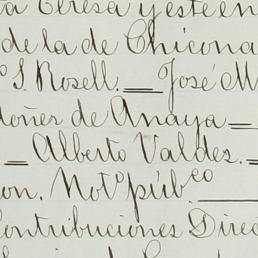 Teresa y este en
de la de Chicona
S. Rosell. — José M
doñer de Anaya —
— Alberto Valdez. —
on. Notº púbco
contribuciones Direc